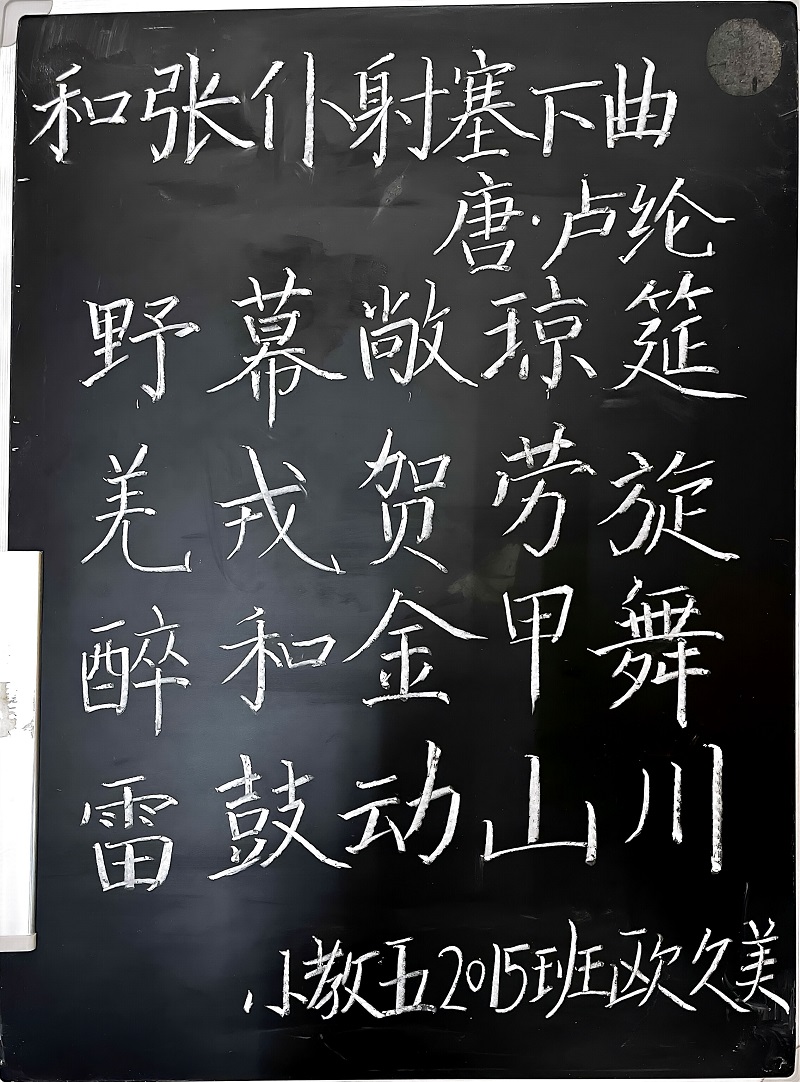 和张仆射塞下曲
唐·卢纶
野幕敞琼筵
羌戎贺劳旋
醉和金甲舞
雷鼓动山川
小教五2015班欧久美